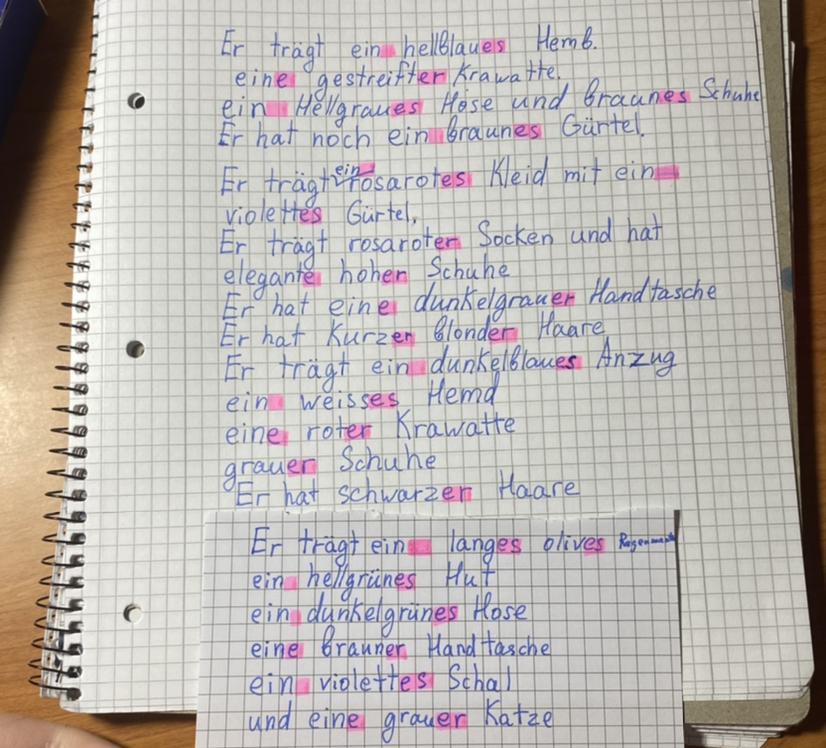 Er trägt ein hellblaues Hemb.
eine gestreifter Krawatte.
ein Hellgraues Hose und braunes Schuhe
Er hat noch ein braunes Gürtel.
Er trägt ein rosarotes Kleid mit ein
violettes Gürtel.
Er trägt rosaroter Socken und hat
elegante hoher Schuhe
Er hat eine dunkelgrauer Handtasche
Er hat Kurzer blonder Haare
Er trägt ein dunkelblaues Anzug
ein weisses Hemd
eine roter Krawatte
grauer Schuhe
Er hat schwarzer Haare
Er trägt ein langes olives
ein hellgrünes Hut
ein dunkelgrünes Hose
eine brauner Handtasche
ein violettes Schal
und eine grauer Katze